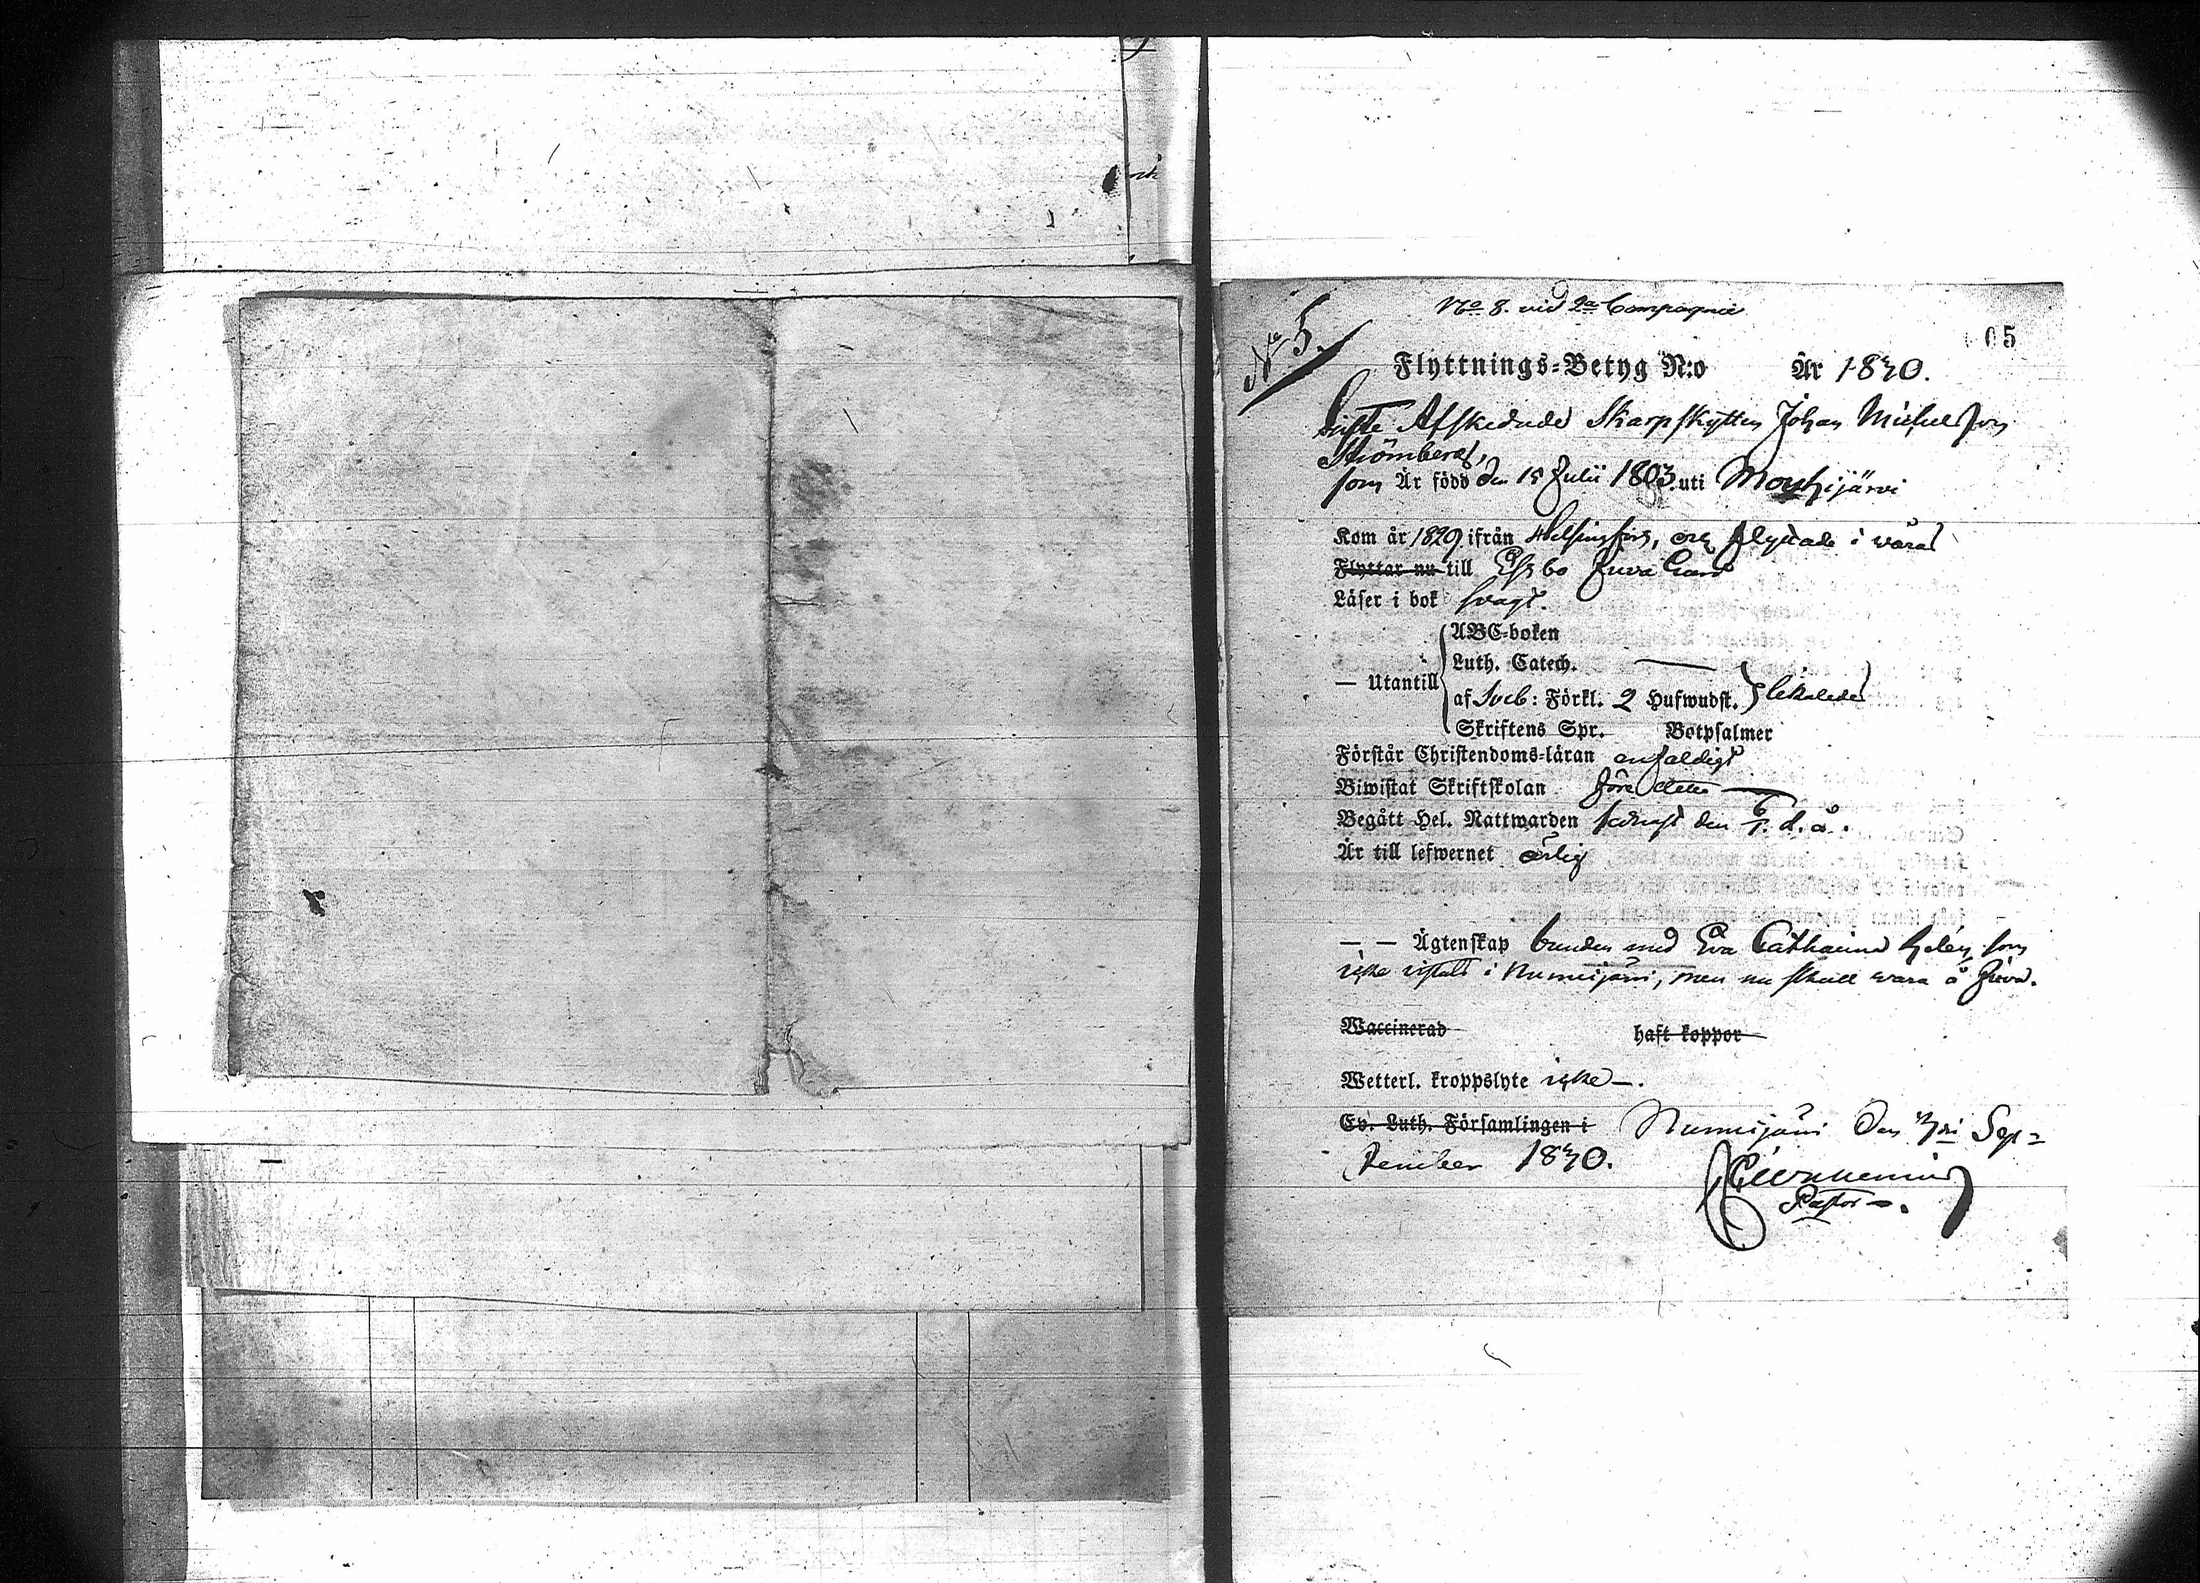 No 8. vid 2a Compagnie
No 5.
05
Flyttnings-Betyg N:o År 1830.
Gifte Afskedade Skarpskytten Johan Michelsson
Strömberg,
som Är född den 15 Julii 1803. uti Mouhijärvi
Kom år 1829 ifrån Helsingfors, och flyttade i våras
Flyttar nu till Esbo Juva Gård
Läser i bok svagt.
ABC-boken
Luth. Catech. —
— Utantill
af Sveb: Förkl. 2 Hufwudst.
Skriftens Spr. Botpsalmer
Förstår Christendoms-läran enfaldigt
Biwistat Skriftskolan före detta
Begått Hel. Nattwarden sednast den d. å.
Är till lefwernet ärlig
— — Ägtenskap bunden med Eva Catharina som
icke vistats i Nummijärvi, men nu skall vara å Juva.
Waccinerad haft koppor
Wetterl. kroppslyte icke —.
Ev. Luth. Församlingen i den Sep=
tember 1830.
Pastor.